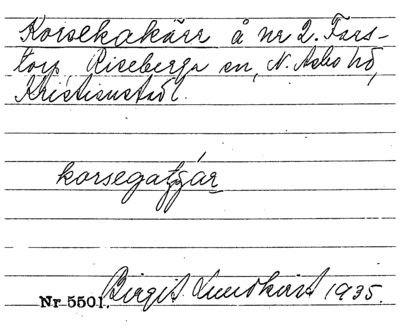 Korsekakärr å nr 2. Fars-
torp, Riseberga sn, N. Åsbo hd,
Kristianstad l.
korsegatfgár
Nr 5501. Birgit Lundkvist 1935.